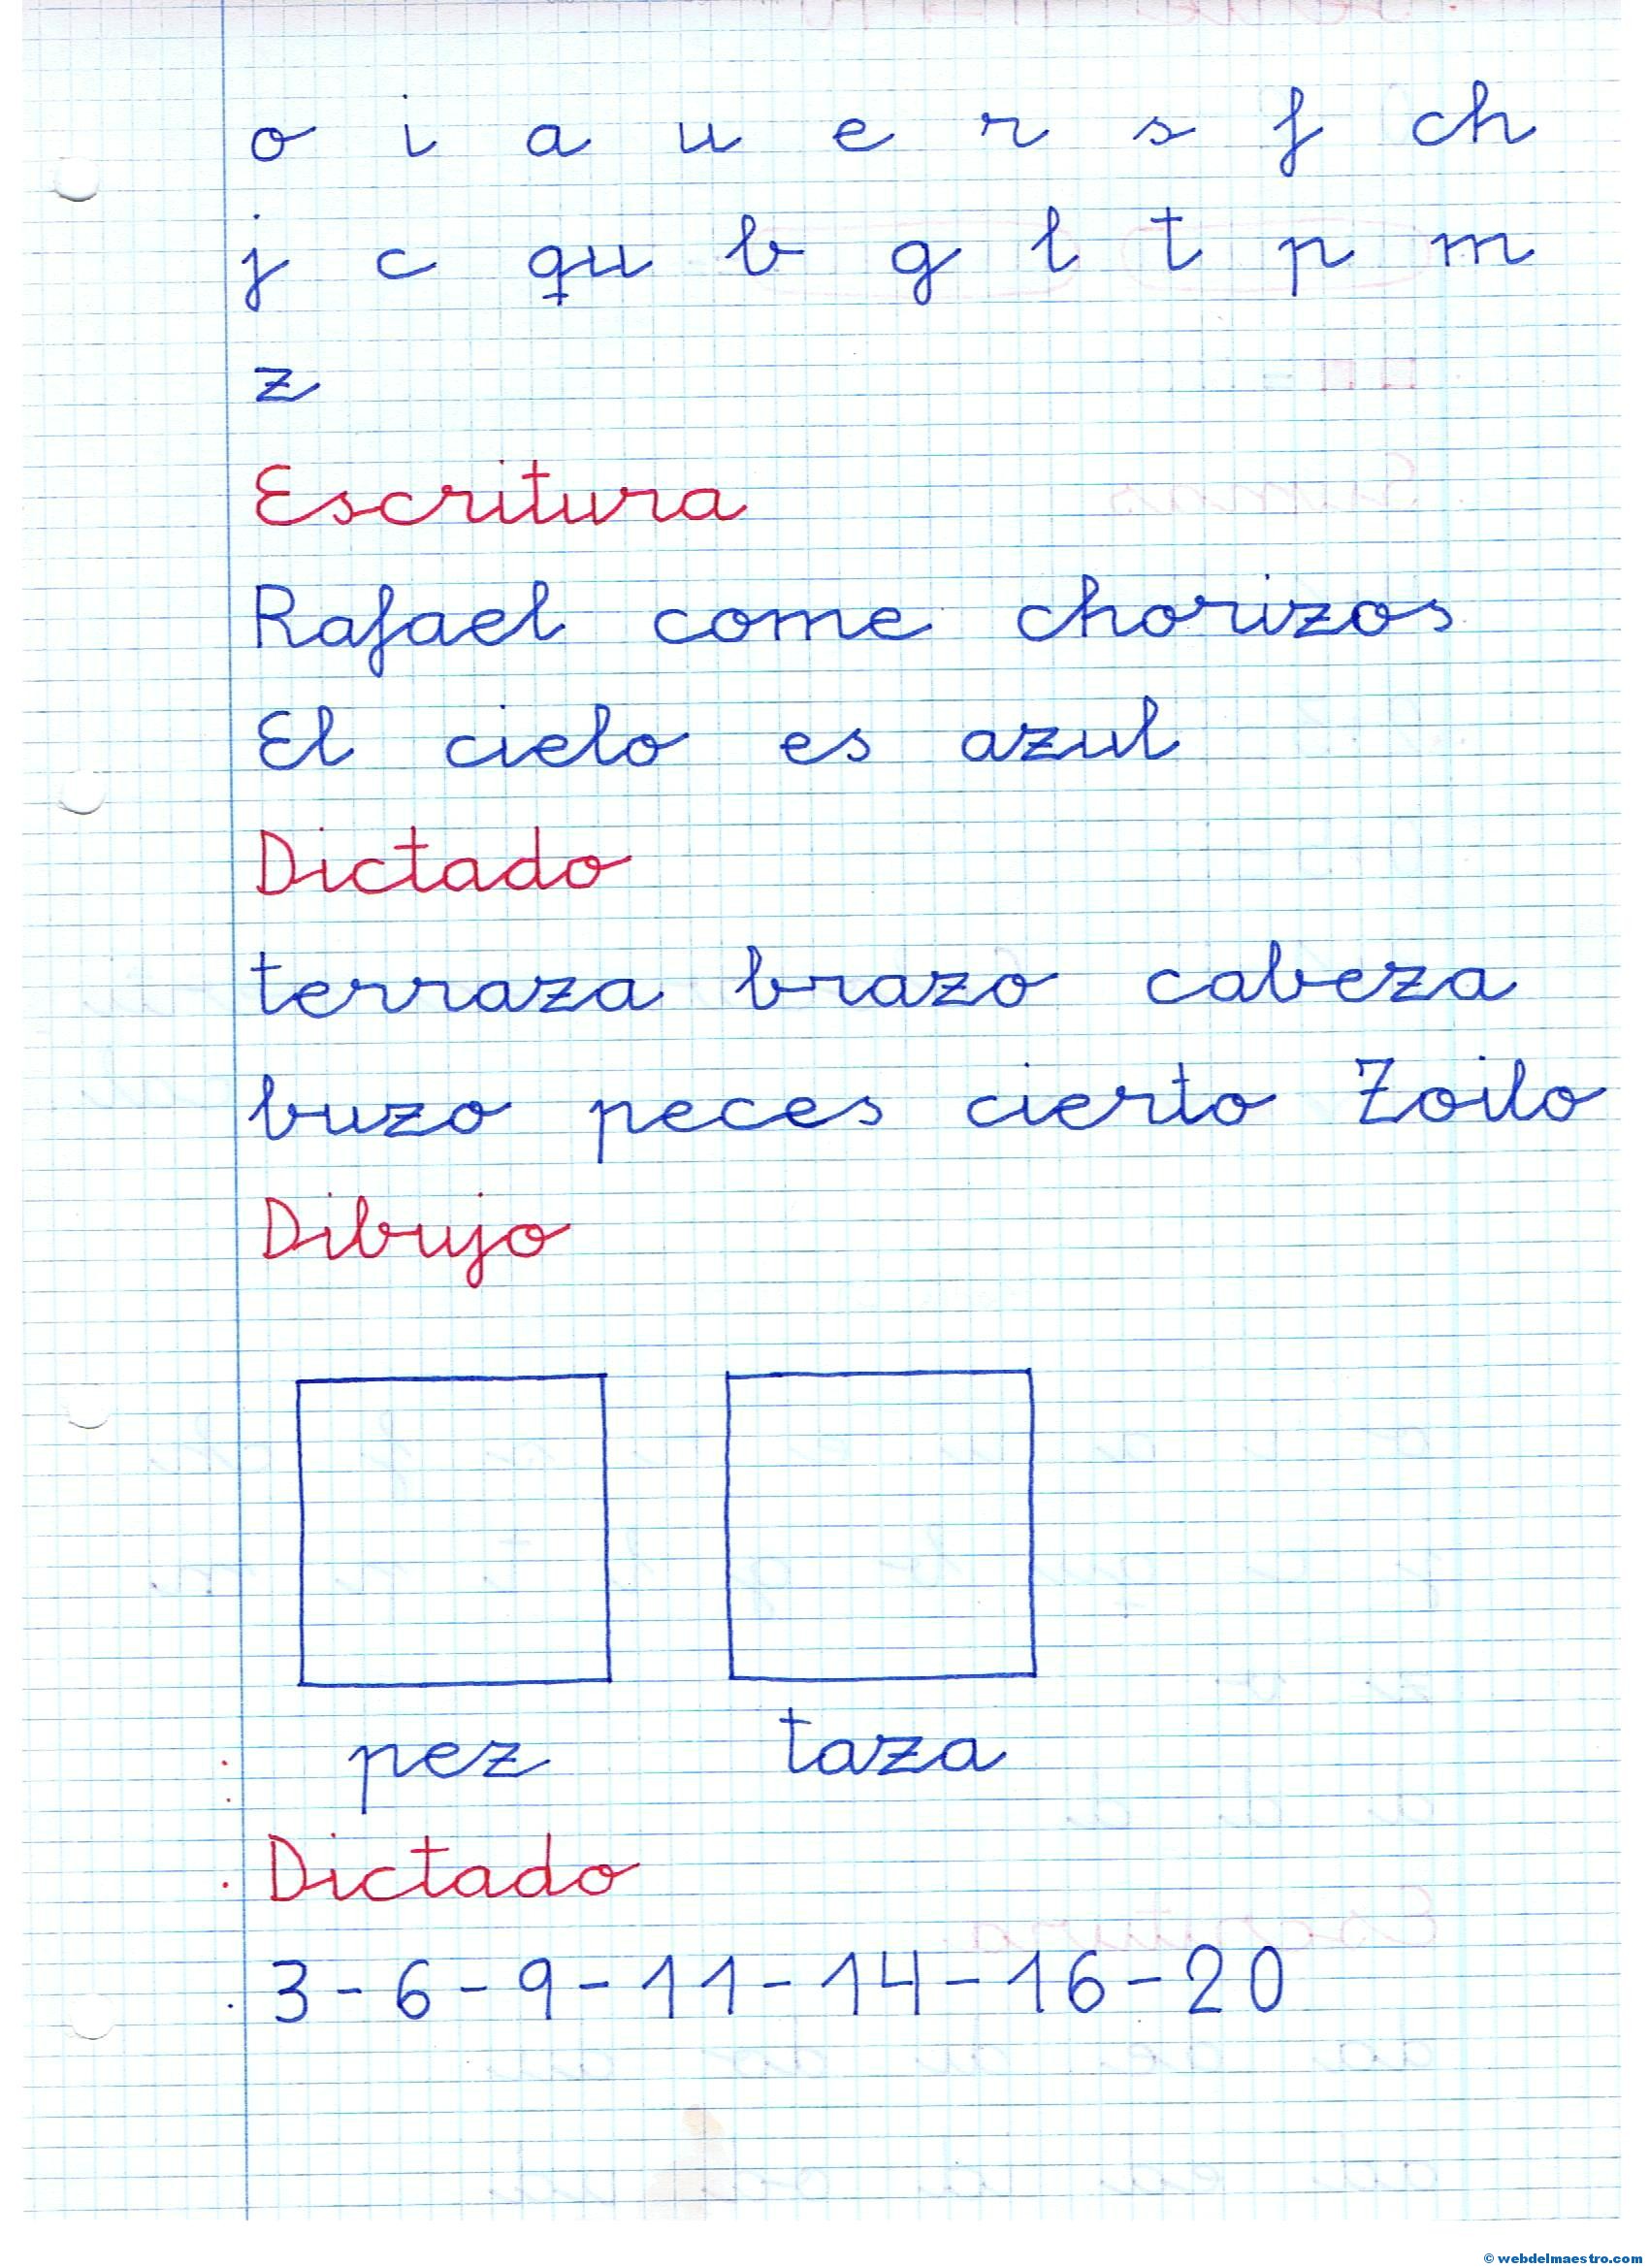 o i a u e r s f ch
j c qu b g l t p m
z
Escritura
Rafael come chorizos
El cielo es azul
Dictado
terraza brazo cabeza
buzo peces cierto Zoilo
Dibujo
pez taza
Dictado
3-6-9-11-14-16-20
© webdelmaestro.com